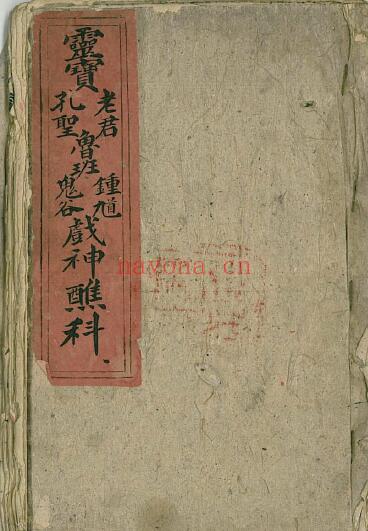 靈寶
老君
孔聖
魯班
鍾馗
鬼谷
戲神醮科
nayona.cn